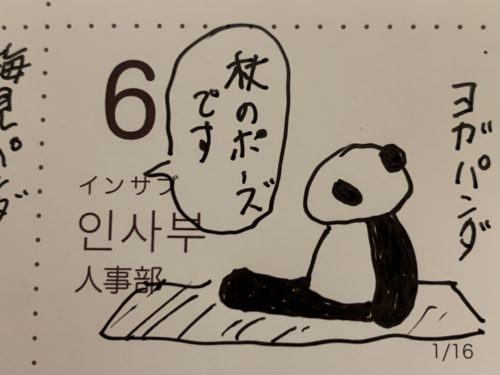 海見パンダ
6
インサブ
인사부
人事部
杖のポーズ
です
ヨガパンダ
1/16